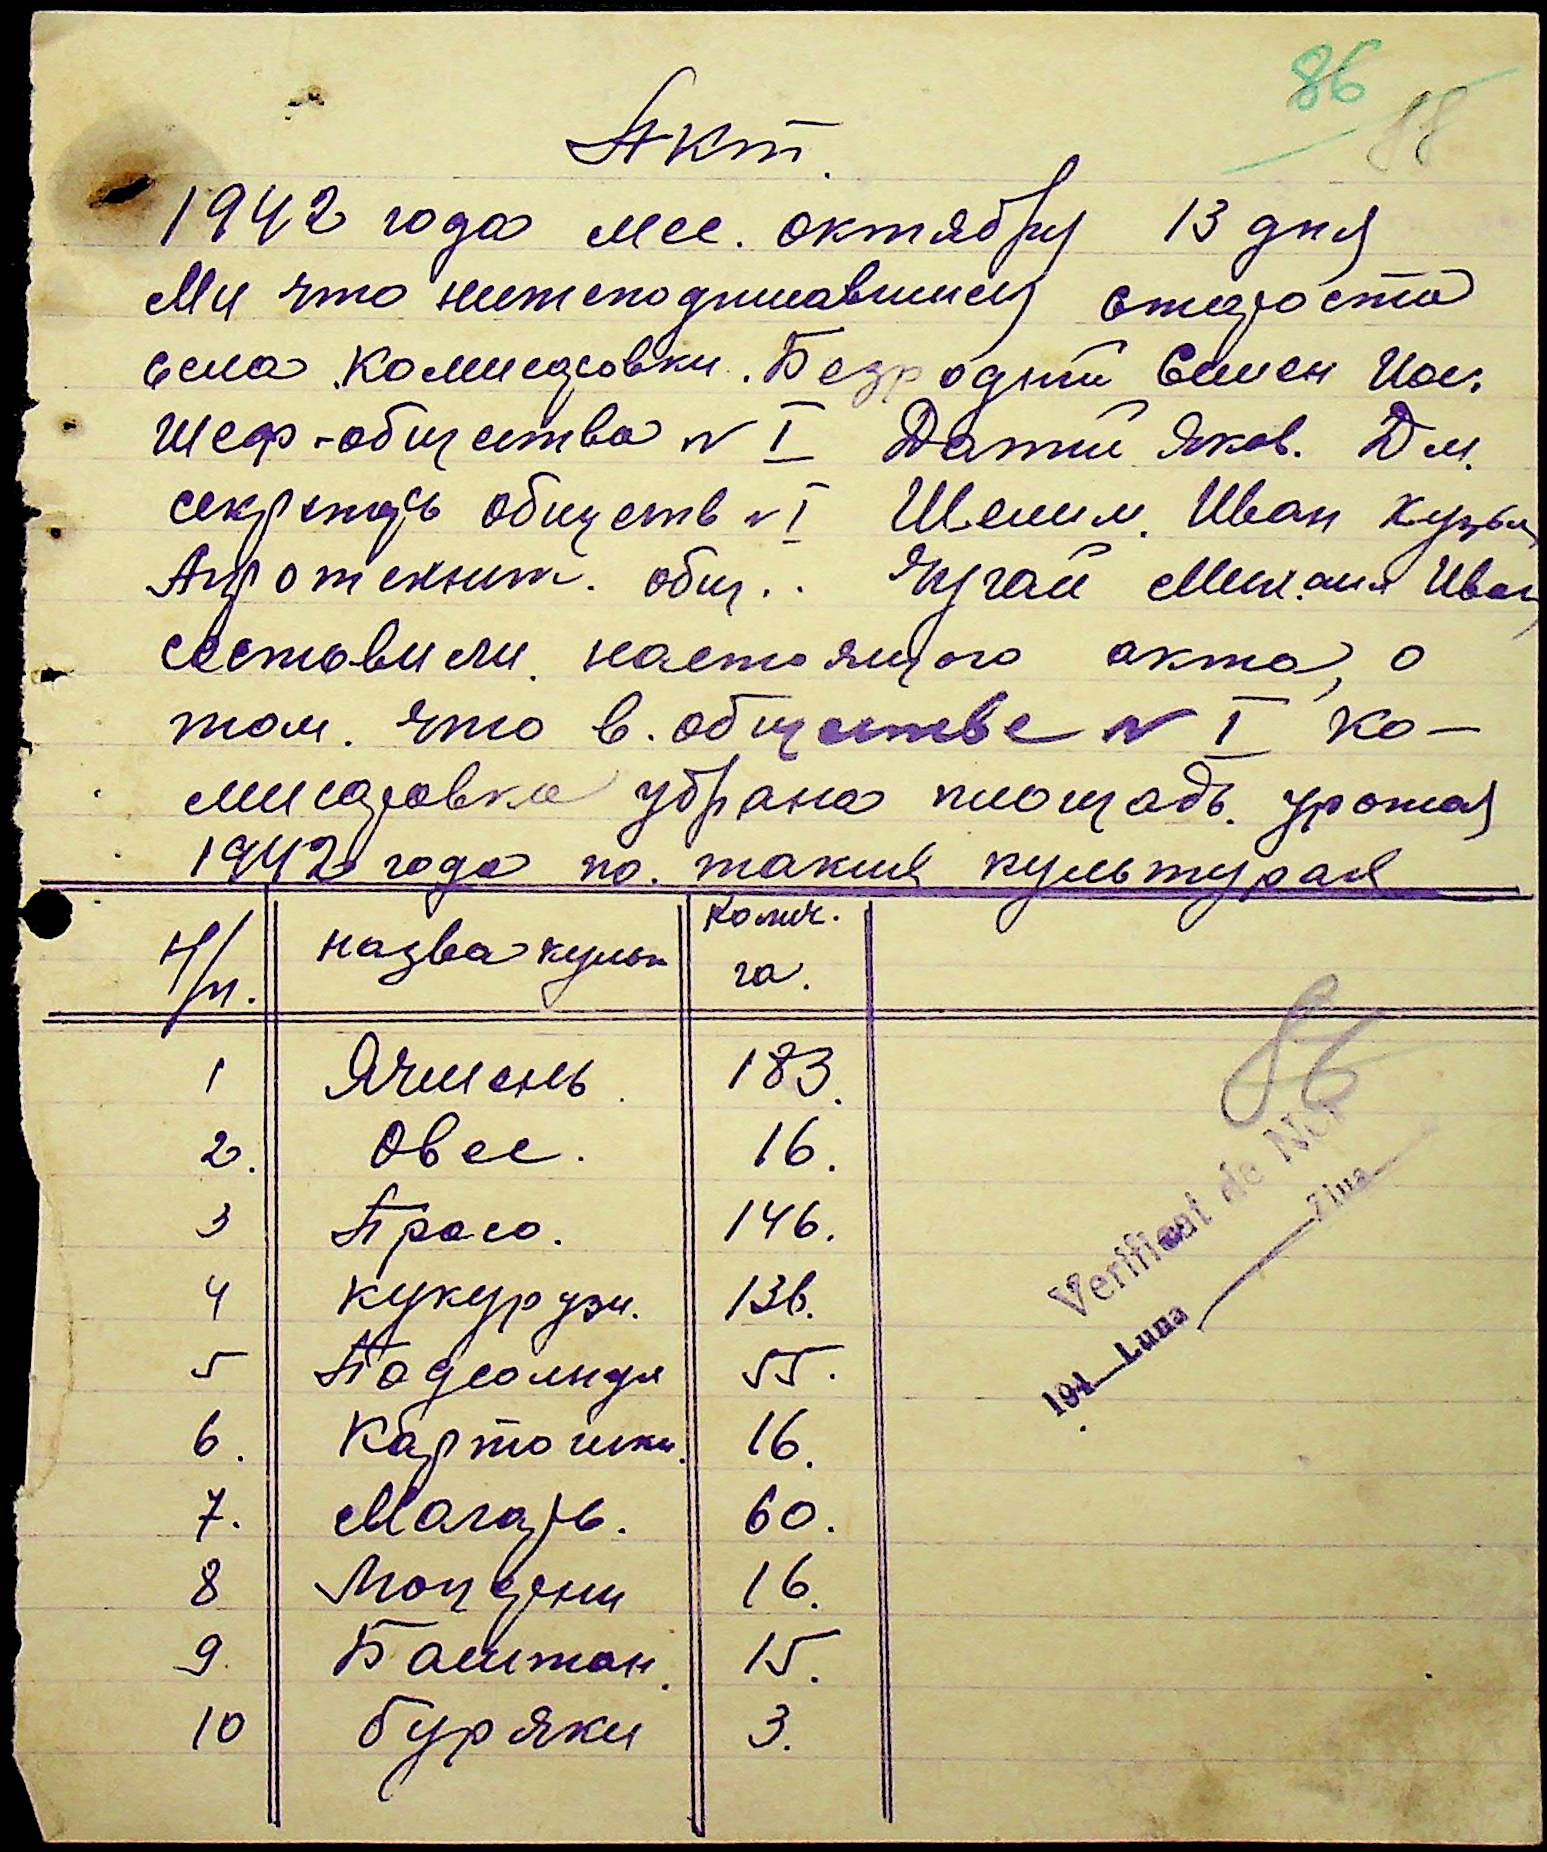 86
88
Акт.
1942 года мес. октября 13 дня
Ми что нижеподписавшиеся староста
села Комисаровки. Безродний Семен Иос.
шеф-общества № I Датий Яков. Дм.
секретарь обществ № I Шелим. Иван Кузьм
Агротехник. общ.. Чугай Михаил Иван
составили настоящого акта, о
том. что в. обществе № I Ко-
мисаровка убрана площадь. урожая
1942 года по. таким культурая
Н/п. назва культ колич. га.
1 Ячмень 183.
2. Овес. 16.
3 Просо. 146.
4 Кукурузи. 136.
5 Подсолнуя 55.
6. Картошки. 16.
7. Могарь. 60.
8 16.
9. Баштан. 15.
10 буряки 3.
86
Verificat de Noi
194 Luna Ziua